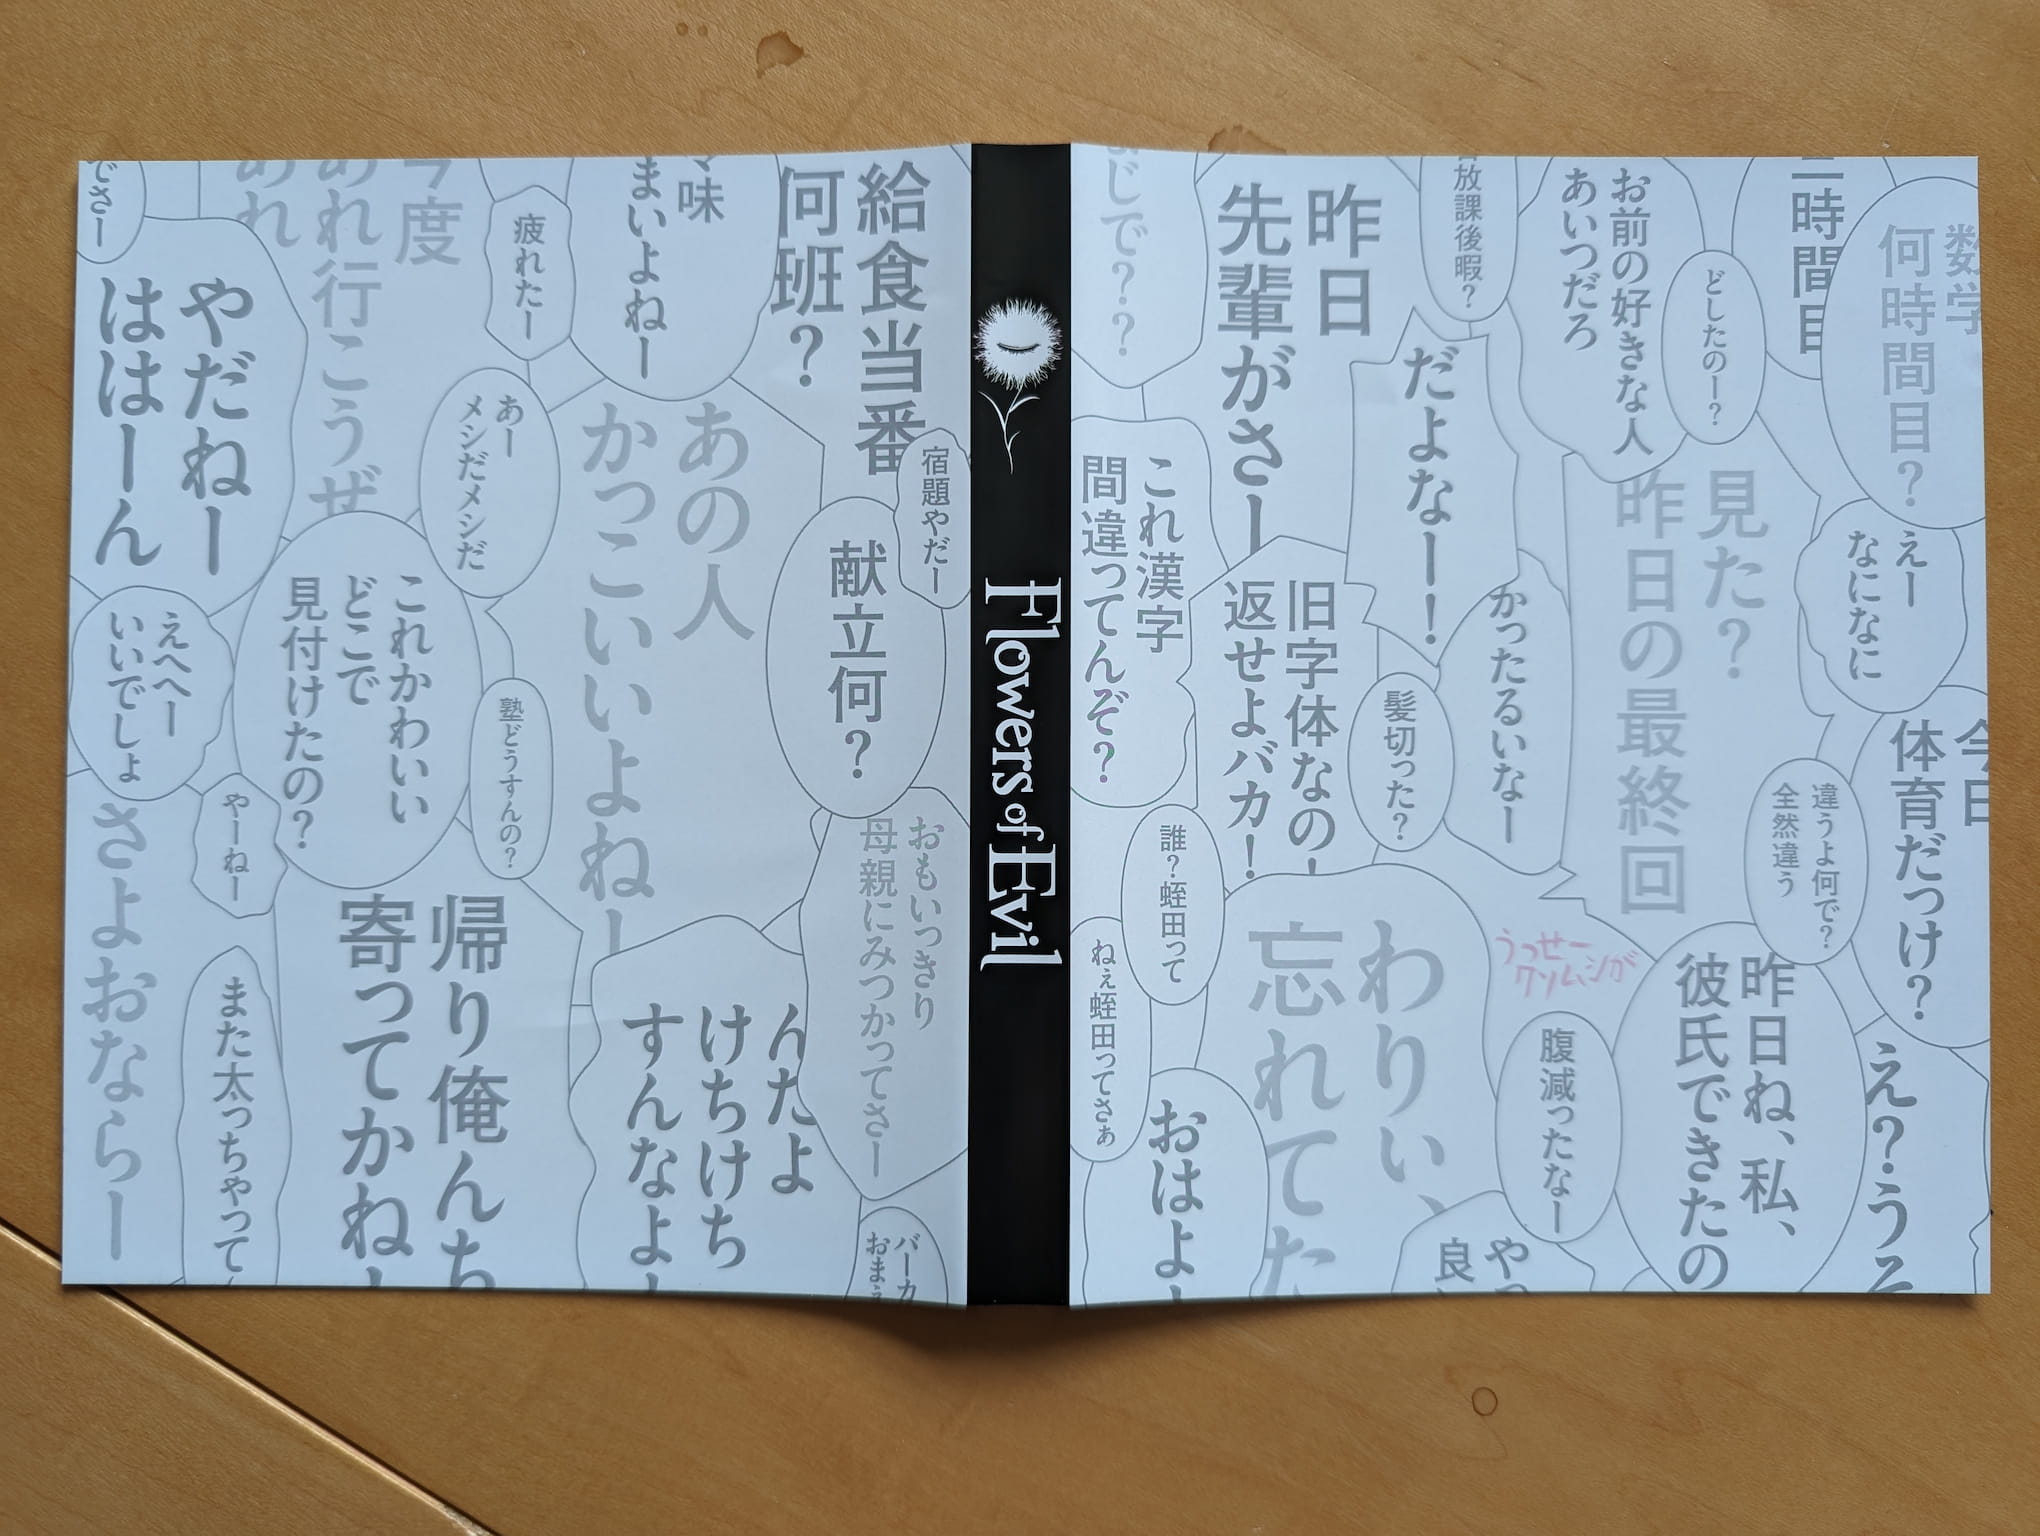 数学
何時間目?
二時間目
お前の好きな人
あいつだろ
どしたのー?
放課後暇?
昨日
先輩がさー
まじで??
だよなー!
えー
なになに
見た?
昨日の最終回
これ漢字
間違ってんぞ?
旧字体なの!
返せよバカ!
かったるいなー
髪切った?
今日
体育だっけ?
違うよ何で?
全然違う
誰?蛭田って
ねぇ蛭田ってさぁ
わりぃ、
忘れてた
うっせー
クソムシが
昨日ね、私、
彼氏できたの
腹減ったなー
え?うそ
おはよ!
Flowers of Evil
給食当番
何班?
まいよねー
疲れたー
今度
あれ行こうぜ
あれ
でさー
やだねー
ははーん
あー
メシだメシだ
あの人
かっこいいよねー
宿題やだー
献立何?
これかわいい
どこで
見付けたの?
えへへー
いいでしょ
塾どうすんの?
やーねー
さよおならー
おもいっきり
母親にみつかってさー
帰り俺んち
寄ってかね!
んだよ
けちけち
すんなよ!
また太っちゃって
バーカ
おまえ